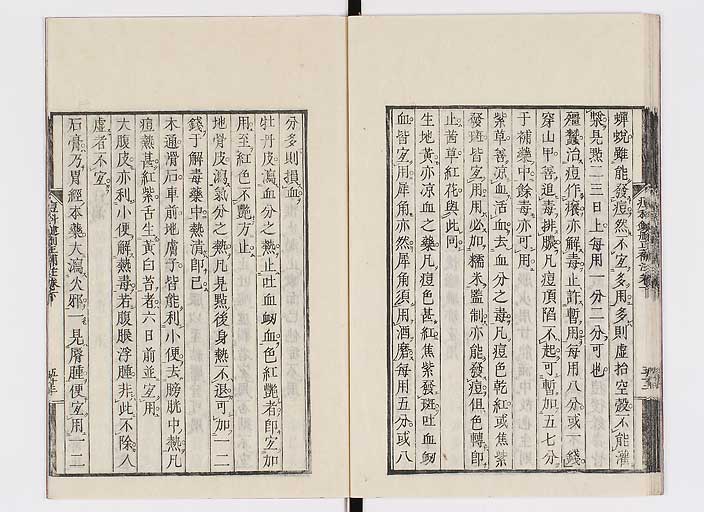 蟬蛻雖能發痘然不宐多用多則虛抬空殼不能灌
漿見點二三日上每用一分二分可也
殭蠶治痘作癢亦解毒止許暫用每用八分或一錢
穿山甲善追毒排膿凡痘頂陷不起可暫加五七分
于補藥中餘毒亦可用
紫草善凉血活血去血分之毒凡痘色乾紅或焦紫
發斑皆宐用用必加糯米監制亦能發痘但色轉卽
止茜草紅花與此同
生地黃亦凉血之藥凡痘色甚紅焦紫發斑吐血衂
血皆宐用犀角亦然犀角須用酒磨每用五分或八
分多則損血
牡丹皮瀉血分之熱止吐血衂血色紅艷者卽宐加
用至紅色不艷方止
地骨皮瀉氣分之熱凡見點後身熱不退可加一二
錢于解毒藥中熱清卽已
木通滑石車前地膚子皆能利小便去膀胱中熱凡
痘熱甚紅紫舌生黃白苔者六日前並宐用
大腹皮亦利小便解熱毒若腹脹浮腫非此不除人
虛者不宐
石膏乃胃經本藥大瀉火邪一見脣腫便宐用一二